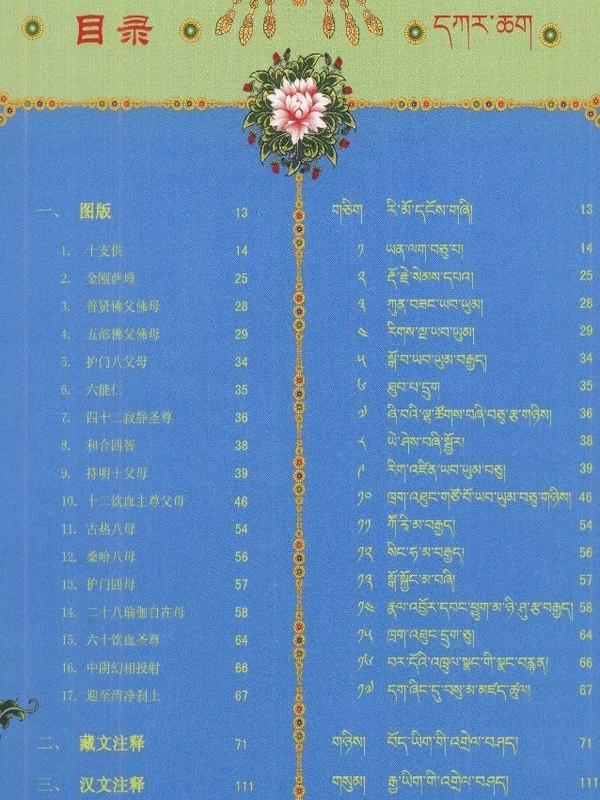 目录
དཀར་ཆག
一、 图版 13
1. 十支供 14
2. 金刚萨埵 25
3. 普贤佛父佛母 28
4. 五部佛父佛母 29
5. 护门八父母 34
6. 六能仁 35
7. 四十二寂静圣尊 36
8. 和合四智 38
9. 持明十父母 39
10. 十二饮血主尊父母 46
11. 古热八母 54
12. 桑哈八母 56
13. 护门四母 57
14. 二十八瑜伽自在母 58
15. 六十饮血圣尊 64
16. 中阴幻相投射 66
17. 迎至清净刹土 67
二、 藏文注释 71
三、 汉文注释 111
གཅིག རི་མོ་དངོས་གཞི། 13
༡ ཡན་ལག་བཅུ་བ། 14
༢ རྡོ་རྗེ་སེམས་དཔའ། 25
༣ ཀུན་བཟང་ཡབ་ཡུམ། 28
༤ རིགས་ལྔ་ཡབ་ཡུམ། 29
༥ སྒོ་བ་ཡབ་ཡུམ་བརྒྱད། 34
༦ ཐུབ་པ་དྲུག 35
༧ ཞི་བའི་ལྷ་ཚོགས་བཞི་བཅུ་རྩ་གཉིས། 36
༨ ཡེ་ཤེས་བཞི་སྦྱོར། 38
༩ རིག་འཛིན་ཡབ་ཡུམ་བཅུ། 39
༡༠ ཁྲག་འཐུང་གཙོ་བོ་ཡབ་ཡུམ་བཅུ་གཉིས། 46
༡༡ ཀོ་རི་མ་བརྒྱད། 54
༡༢ སིང་ཧ་མ་བརྒྱད། 56
༡༣ སྒོ་སྐྱོང་མ་བཞི། 57
༡༤ རྣལ་འབྱོར་དབང་ཕྱུག་མ་ཉི་ཤུ་རྩ་བརྒྱད། 58
༡༥ ཁྲག་འཐུང་དྲུག་ཅུ། 64
༡༦ བར་དོའི་འཁྲུལ་སྣང་གི་སྣང་བརྙན། 66
༡༧ དག་ཞིང་དུ་བསུ་མ་མཛད་ཚུལ། 67
གཉིས། བོད་ཡིག་གི་འགྲེལ་བཤད། 71
གསུམ། རྒྱ་ཡིག་གི་འགྲེལ་བཤད། 111